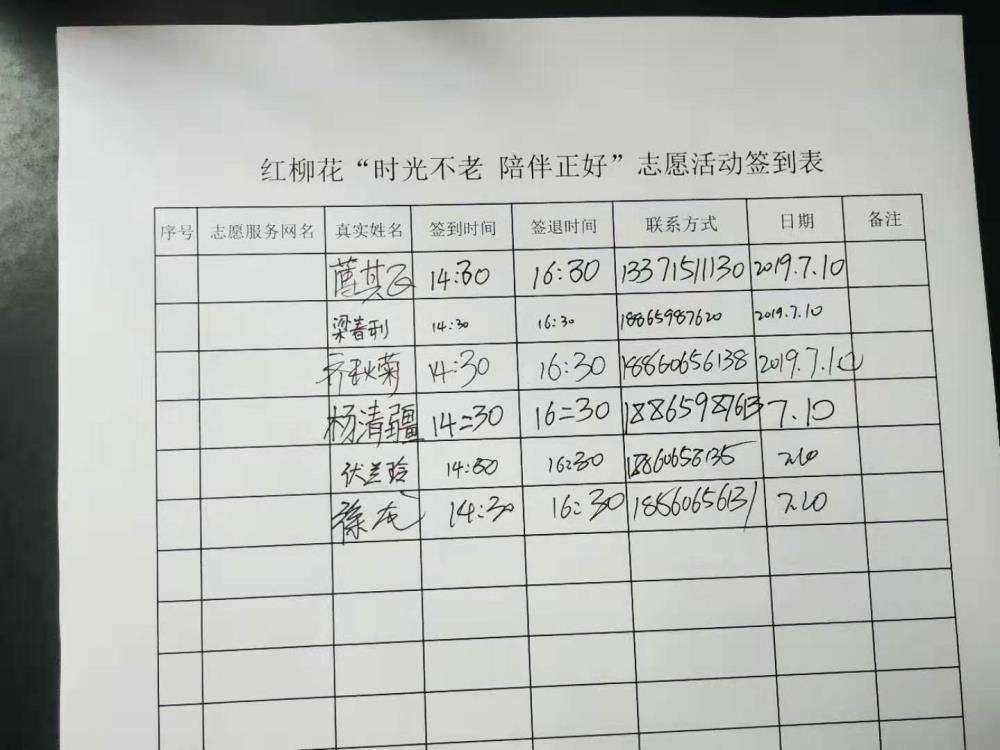 红柳花“时光不老 陪伴正好”志愿活动签到表
序号 志愿服务网名 真实姓名 签到时间 签退时间 联系方式 日期 备注
14:30 16:30 13371511130 2019.7.10
梁春利 14:30 16:30 18865987620 2019.7.10
齐秋菊 14:30 16:30 18860656138 2019.7.10
杨清疆 14=30 16=30 18865987613 7.10
伏兰玲 14:30 16:30 18860656135 7.10
徐龙 14:30 16:30 18860656131 7.10